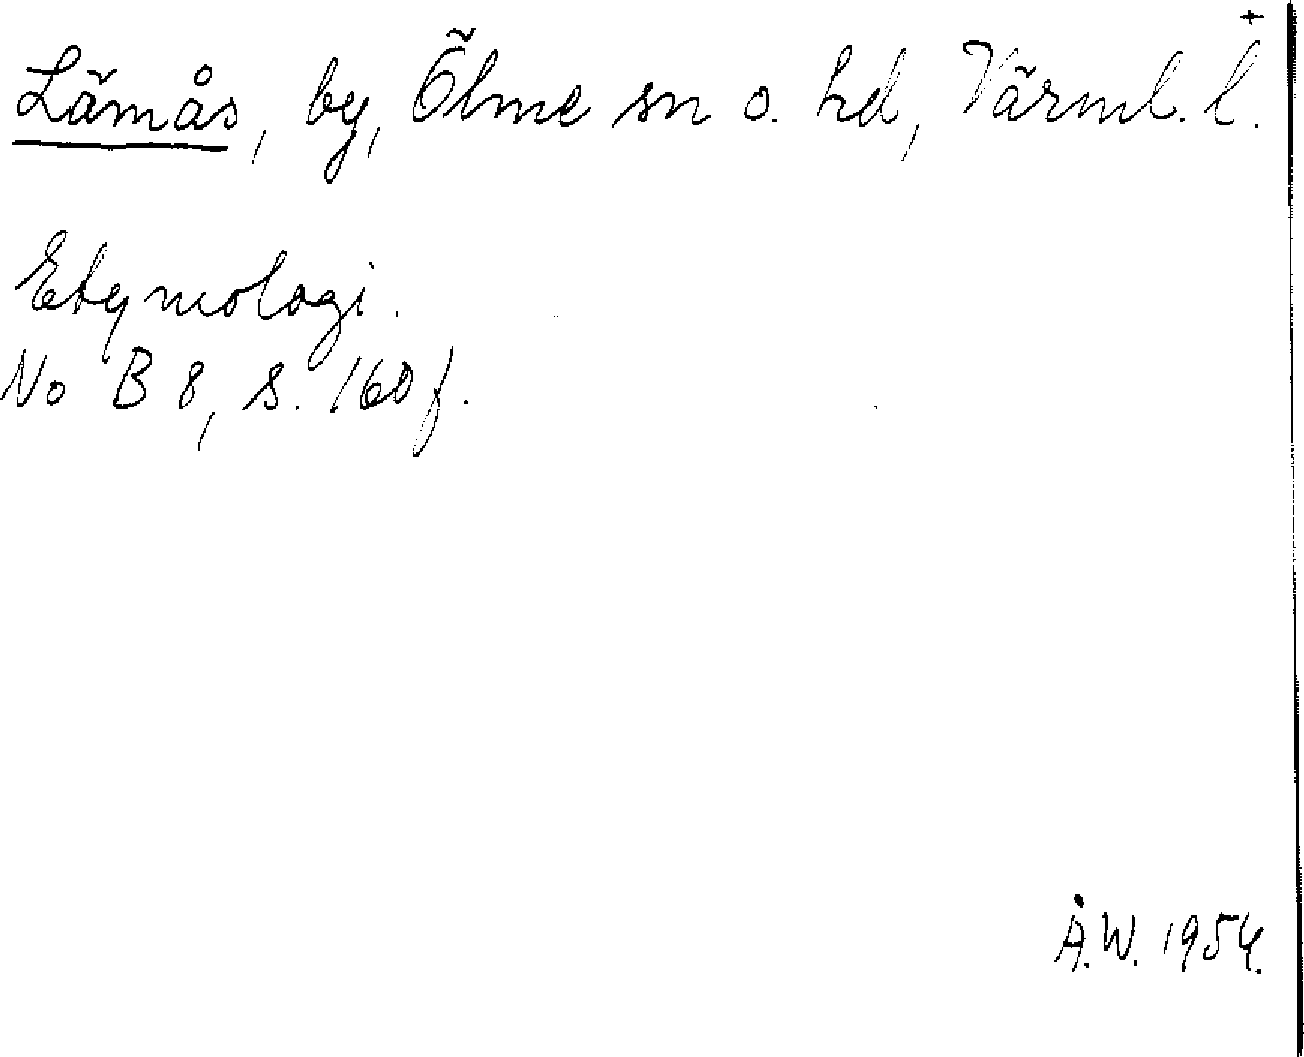 +
Lämås, by, Ölme sn o. hd, Värml. l.
Etymologi.
No B 8, s. 160 f.
Å.W. 1954.